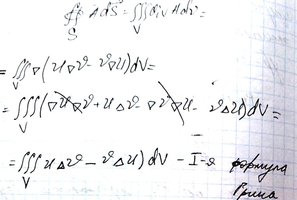 ∯ A dS = ∭ div A dV =
S V
= ∭ ∇(u∇v - v∇u)dV =
V
= ∭ (∇u∇v + u△v - ∇v∇u - v△u)dV =
V
= ∭ u△v - v△u) dV - I-я формула
V Грина